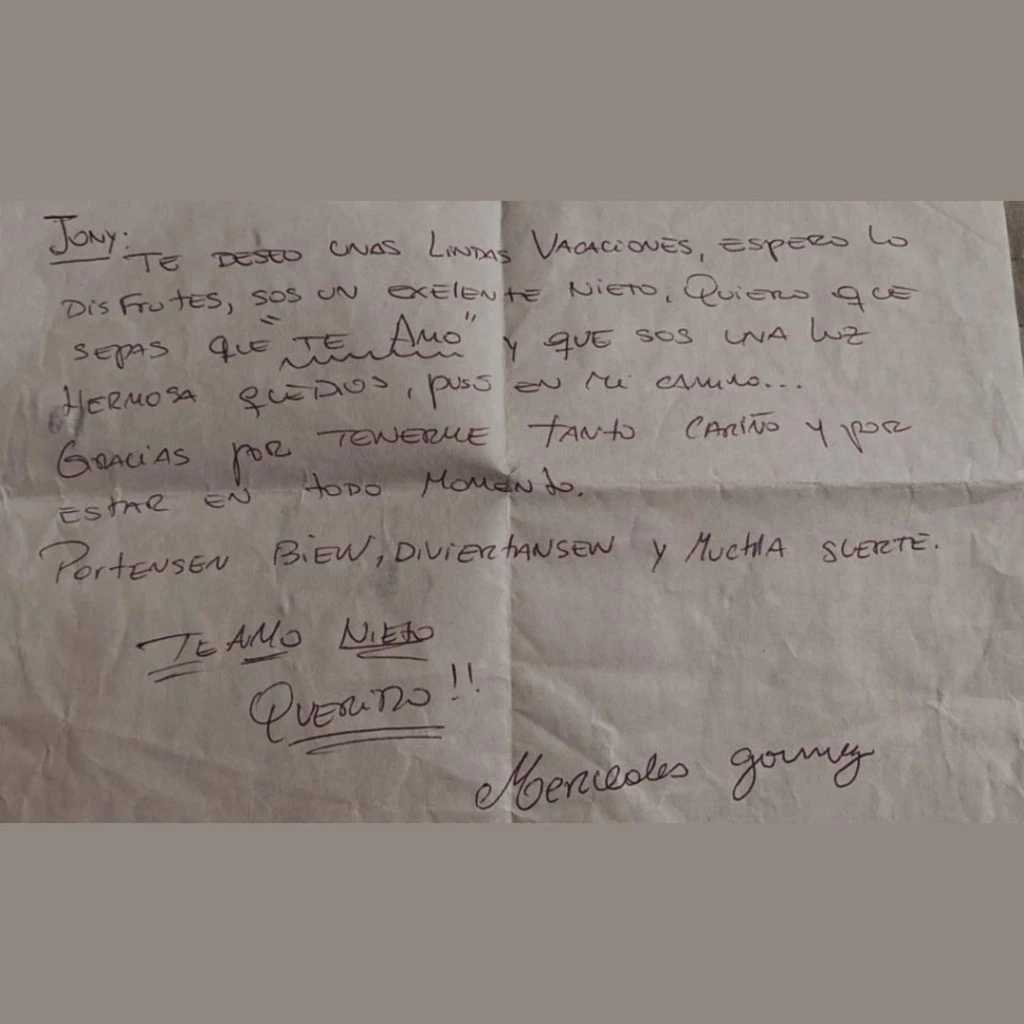 Jony:
TE DESEO UNAS LINDAS VACACIONES, ESPERO LO
DISFRUTES, SOS UN EXELENTE NIETO, QUIERO QUE
SEPAS QUE "TE AMO" Y QUE SOS UNA LUZ
HERMOSA QUE DIOS, PUSO EN MI CAMINO...
GRACIAS POR TENERME TANTO CARIÑO Y POR
ESTAR EN TODO MOMENTO.
PORTENSEN BIEN, DIVIERTANSEN Y MUCHA SUERTE.
TE AMO NIETO
QUERIDO!!
Mercedes gomez